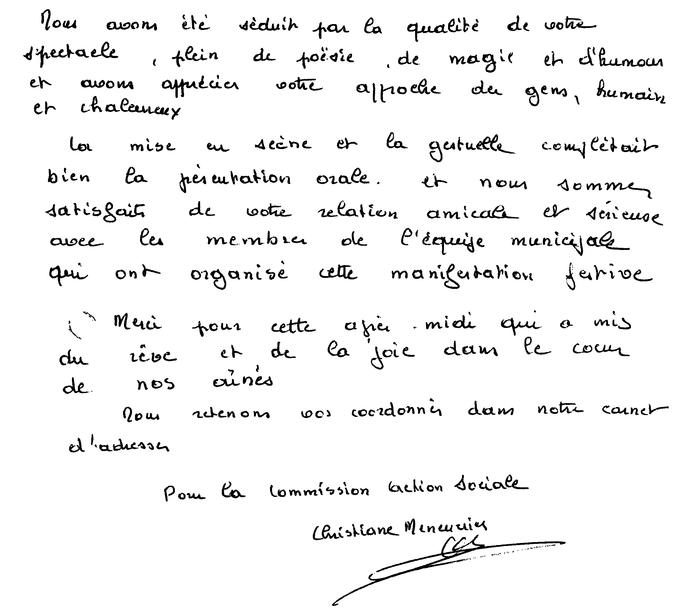 Nous avons été séduit par la qualité de votre
spectacle, plein de poësie, de magie et d'humour
et avons apprécier votre approche des gens, humain
et chaleureux
La mise en scène et la gestuelle complétait
bien la présentation orale. et nous sommes
satisfaits de votre relation amicale et sérieuse
avec les membres de l'équipe municipale
qui ont organisé cette manifestation festive
Merci pour cette après-midi qui a mis
du rêve et de la joie dans le coeur
de nos aînés
Nous retenons vos coordonnés dans notre carnet
d'adresses
Pour la Commission Action Sociale
Christiane